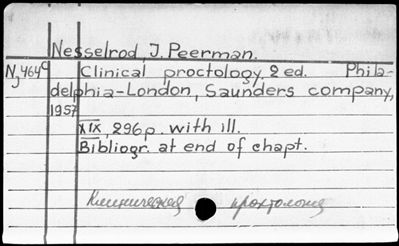 Nesselrod, J. Peerman.
Nj464c Clinical proctology, 2 ed. Phila-
delphia-London, Saunders company,
1957
XIX, 296p. with ill.
Bibliogr. at end of chapt.
Клиническая проктология